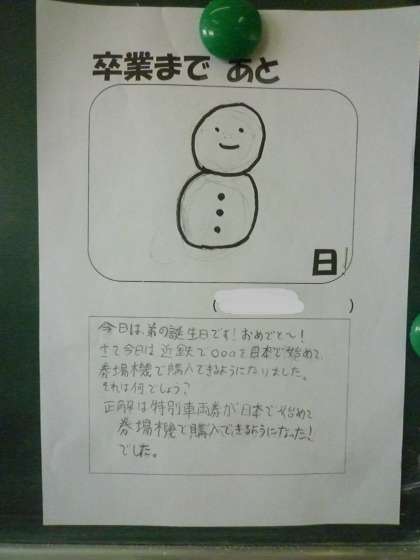 卒業まで あと
日
(          )
今日は、弟の誕生日です!おめでと〜!
さて今日は近鉄で○○○を日本で始めて、
券場機で購入できるようになりました。
それは何でしょう?
正解は特別車両券が日本で始めて
券場機で購入できるようになった!
でした。